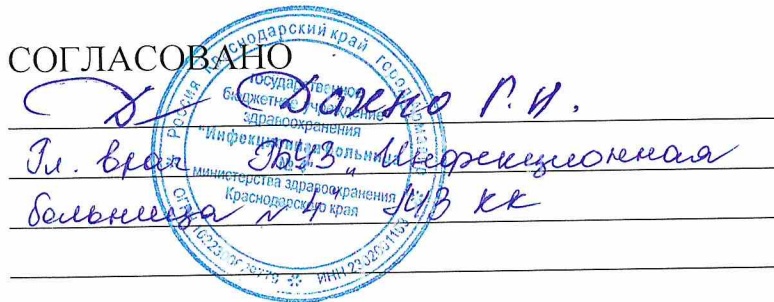 СОГЛАСОВАНО
Дахно Г.И.
Гл. врач ГБУЗ „Инфекционная
больница № 4" МЗ КК
Россия Краснодарский край город Армавир
Государственное
бюджетное учреждение
здравоохранения
"Инфекционная больница
№ 4"
министерства здравоохранения
Краснодарского края
ОГРН
ИНН